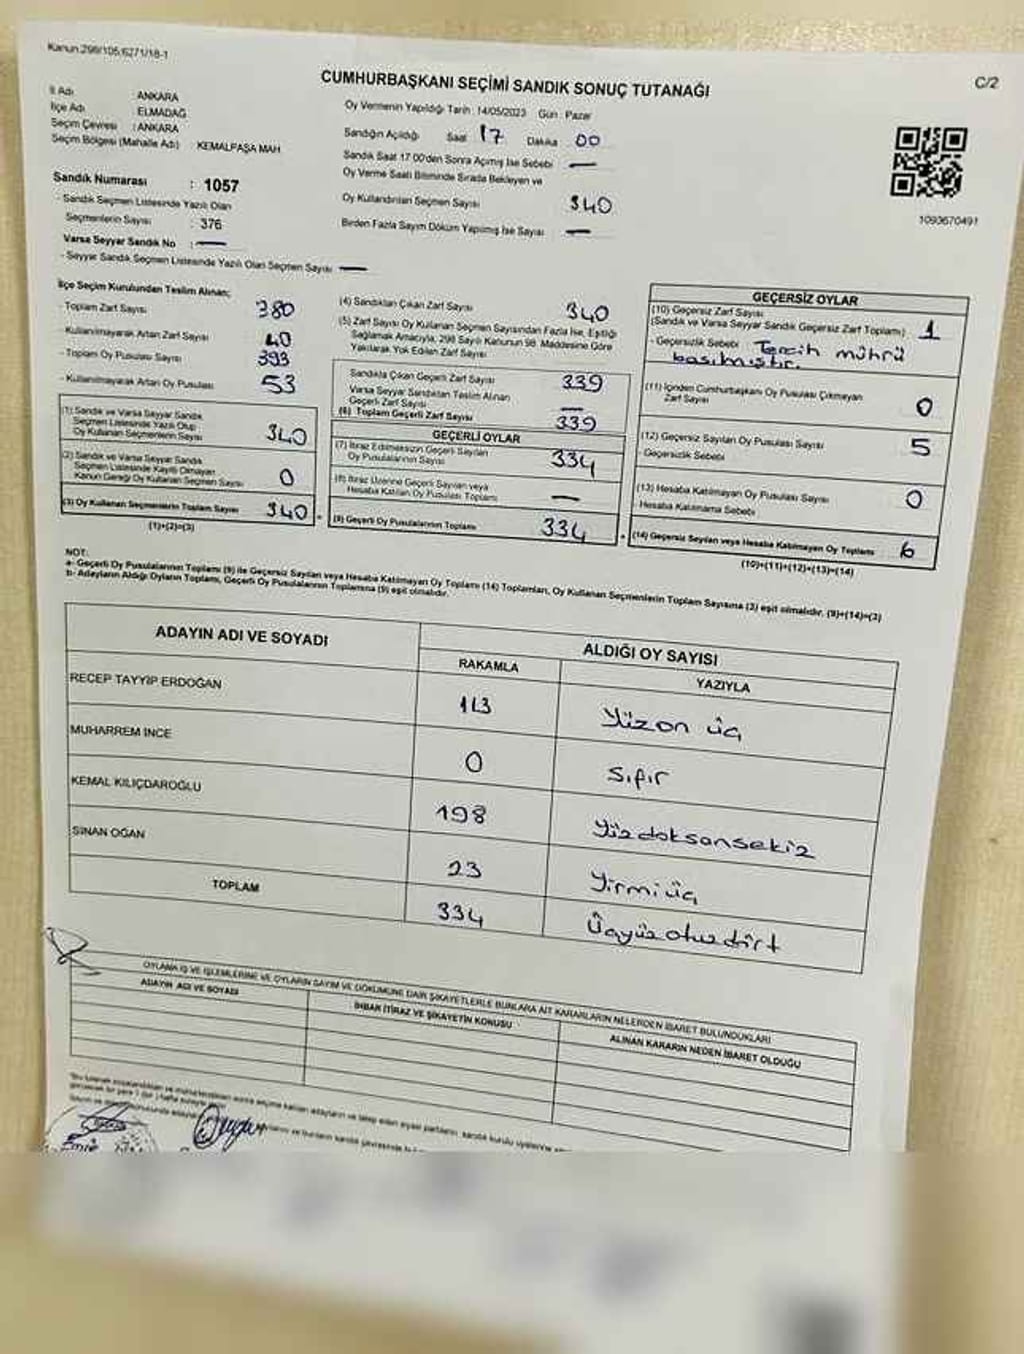 Kanun:298/105,6271/18-1
C/2
CUMHURBAŞKANI SEÇİMİ SANDIK SONUÇ TUTANAĞI
İl Adı : ANKARA
İlçe Adı : ELMADAĞ
Seçim Çevresi : ANKARA
Seçim Bölgesi (Mahalle Adı) : KEMALPAŞA MAH
Sandık Numarası : 1057
- Sandık Seçmen Listesinde Yazılı Olan
Seçmenlerin Sayısı : 376
Varsa Seyyar Sandık No : —
- Seyyar Sandık Seçmen Listesinde Yazılı Olan Seçmen Sayısı —
Oy Vermenin Yapıldığı Tarih : 14/05/2023 Gün : Pazar
Sandığın Açıldığı Saat 17 Dakika 00
Sandık Saat 17:00'den Sonra Açımış İse Sebebi —
Oy Verme Saati Bitiminde Sırada Bekleyen ve
Oy Kullandırılan Seçmen Sayısı 340
Birden Fazla Sayım Döküm Yapılmış İse Sayısı —
1093670491
İlçe Seçim Kurulundan Teslim Alınan;
- Toplam Zarf Sayısı 380
- Kullanılmayarak Artan Zarf Sayısı 40
- Toplam Oy Pusulası Sayısı 393
- Kullanılmayarak Artan Oy Pusulası 53
(1) Sandık ve Varsa Seyyar Sandık
Seçmen Listesinde Yazılı Olup
Oy Kullanan Seçmenlerin Sayısı 340
(2) Sandık ve Varsa Seyyar Sandık
Seçmen Listesinde Kayıtlı Olmayan
Kanun Gereği Oy Kullanan Seçmen Sayısı 0
(3) Oy Kullanan Seçmenlerin Toplam Sayısı 340
(1)+(2)=(3)
(4) Sandıktan Çıkan Zarf Sayısı 340
(5) Zarf Sayısı Oy Kullanan Seçmen Sayısından Fazla İse, Eşitliği
Sağlamak Amacıyla, 298 Sayılı Kanunun 98. Maddesine Göre
Yakılarak Yok Edilen Zarf Sayısı
Sandıkta Çıkan Geçerli Zarf Sayısı 339
Varsa Seyyar Sandıktan Teslim Alınan
Geçerli Zarf Sayısı —
(6) Toplam Geçerli Zarf Sayısı 339
GEÇERLİ OYLAR
(7) İtiraz Edilmeksizin Geçerli Sayılan
Oy Pusulalarının Sayısı 334
(8) İtiraz Üzerine Geçerli Sayılan veya
Hesaba Katılan Oy Pusulası Toplamı —
(9) Geçerli Oy Pusulalarının Toplamı 334
GEÇERSİZ OYLAR
(10) Geçersiz Zarf Sayısı
(Sandık ve Varsa Seyyar Sandık Geçersiz Zarf Toplamı) 1
- Geçersizlik Sebebi Tercih mührü
basılmıştır.
(11) İçinden Cumhurbaşkanı Oy Pusulası Çıkmayan
Zarf Sayısı 0
(12) Geçersiz Sayılan Oy Pusulası Sayısı 5
- Geçersizlik Sebebi
(13) Hesaba Katılmayan Oy Pusulası Sayısı 0
- Hesaba Katılmama Sebebi
(14) Geçersiz Sayılan veya Hesaba Katılmayan Oy Toplamı 6
(10)+(11)+(12)+(13)=(14)
NOT:
a- Geçerli Oy Pusulalarının Toplamı (9) ile Geçersiz Sayılan veya Hesaba Katılmayan Oy Toplamı (14) Toplamları, Oy Kullanan Seçmenlerin Toplam Sayısına (3) eşit olmalıdır. (9)+(14)=(3)
b- Adayların Aldığı Oyların Toplamı, Geçerli Oy Pusulalarının Toplamına (9) eşit olmalıdır.
ADAYIN ADI VE SOYADI ALDIĞI OY SAYISI
RAKAMLA YAZIYLA
RECEP TAYYİP ERDOĞAN 113 Yüzon üç
MUHARREM İNCE 0 Sıfır
KEMAL KILIÇDAROĞLU 198 Yüzdoksansekiz
SİNAN OĞAN 23 Yirmiüç
TOPLAM 334 Üçyüzotuzdört
OYLAMA İŞ VE İŞLEMLERİNE VE OYLARIN SAYIM VE DÖKÜMÜNE DAİR ŞİKAYETLERLE BUNLARA AİT KARARLARIN NELERDEN İBARET BULUNDUKLARI
ADAYIN ADI VE SOYADI İHBAR İTİRAZ VE ŞİKAYETİN KONUSU ALINAN KARARIN NEDEN İBARET OLDUĞU